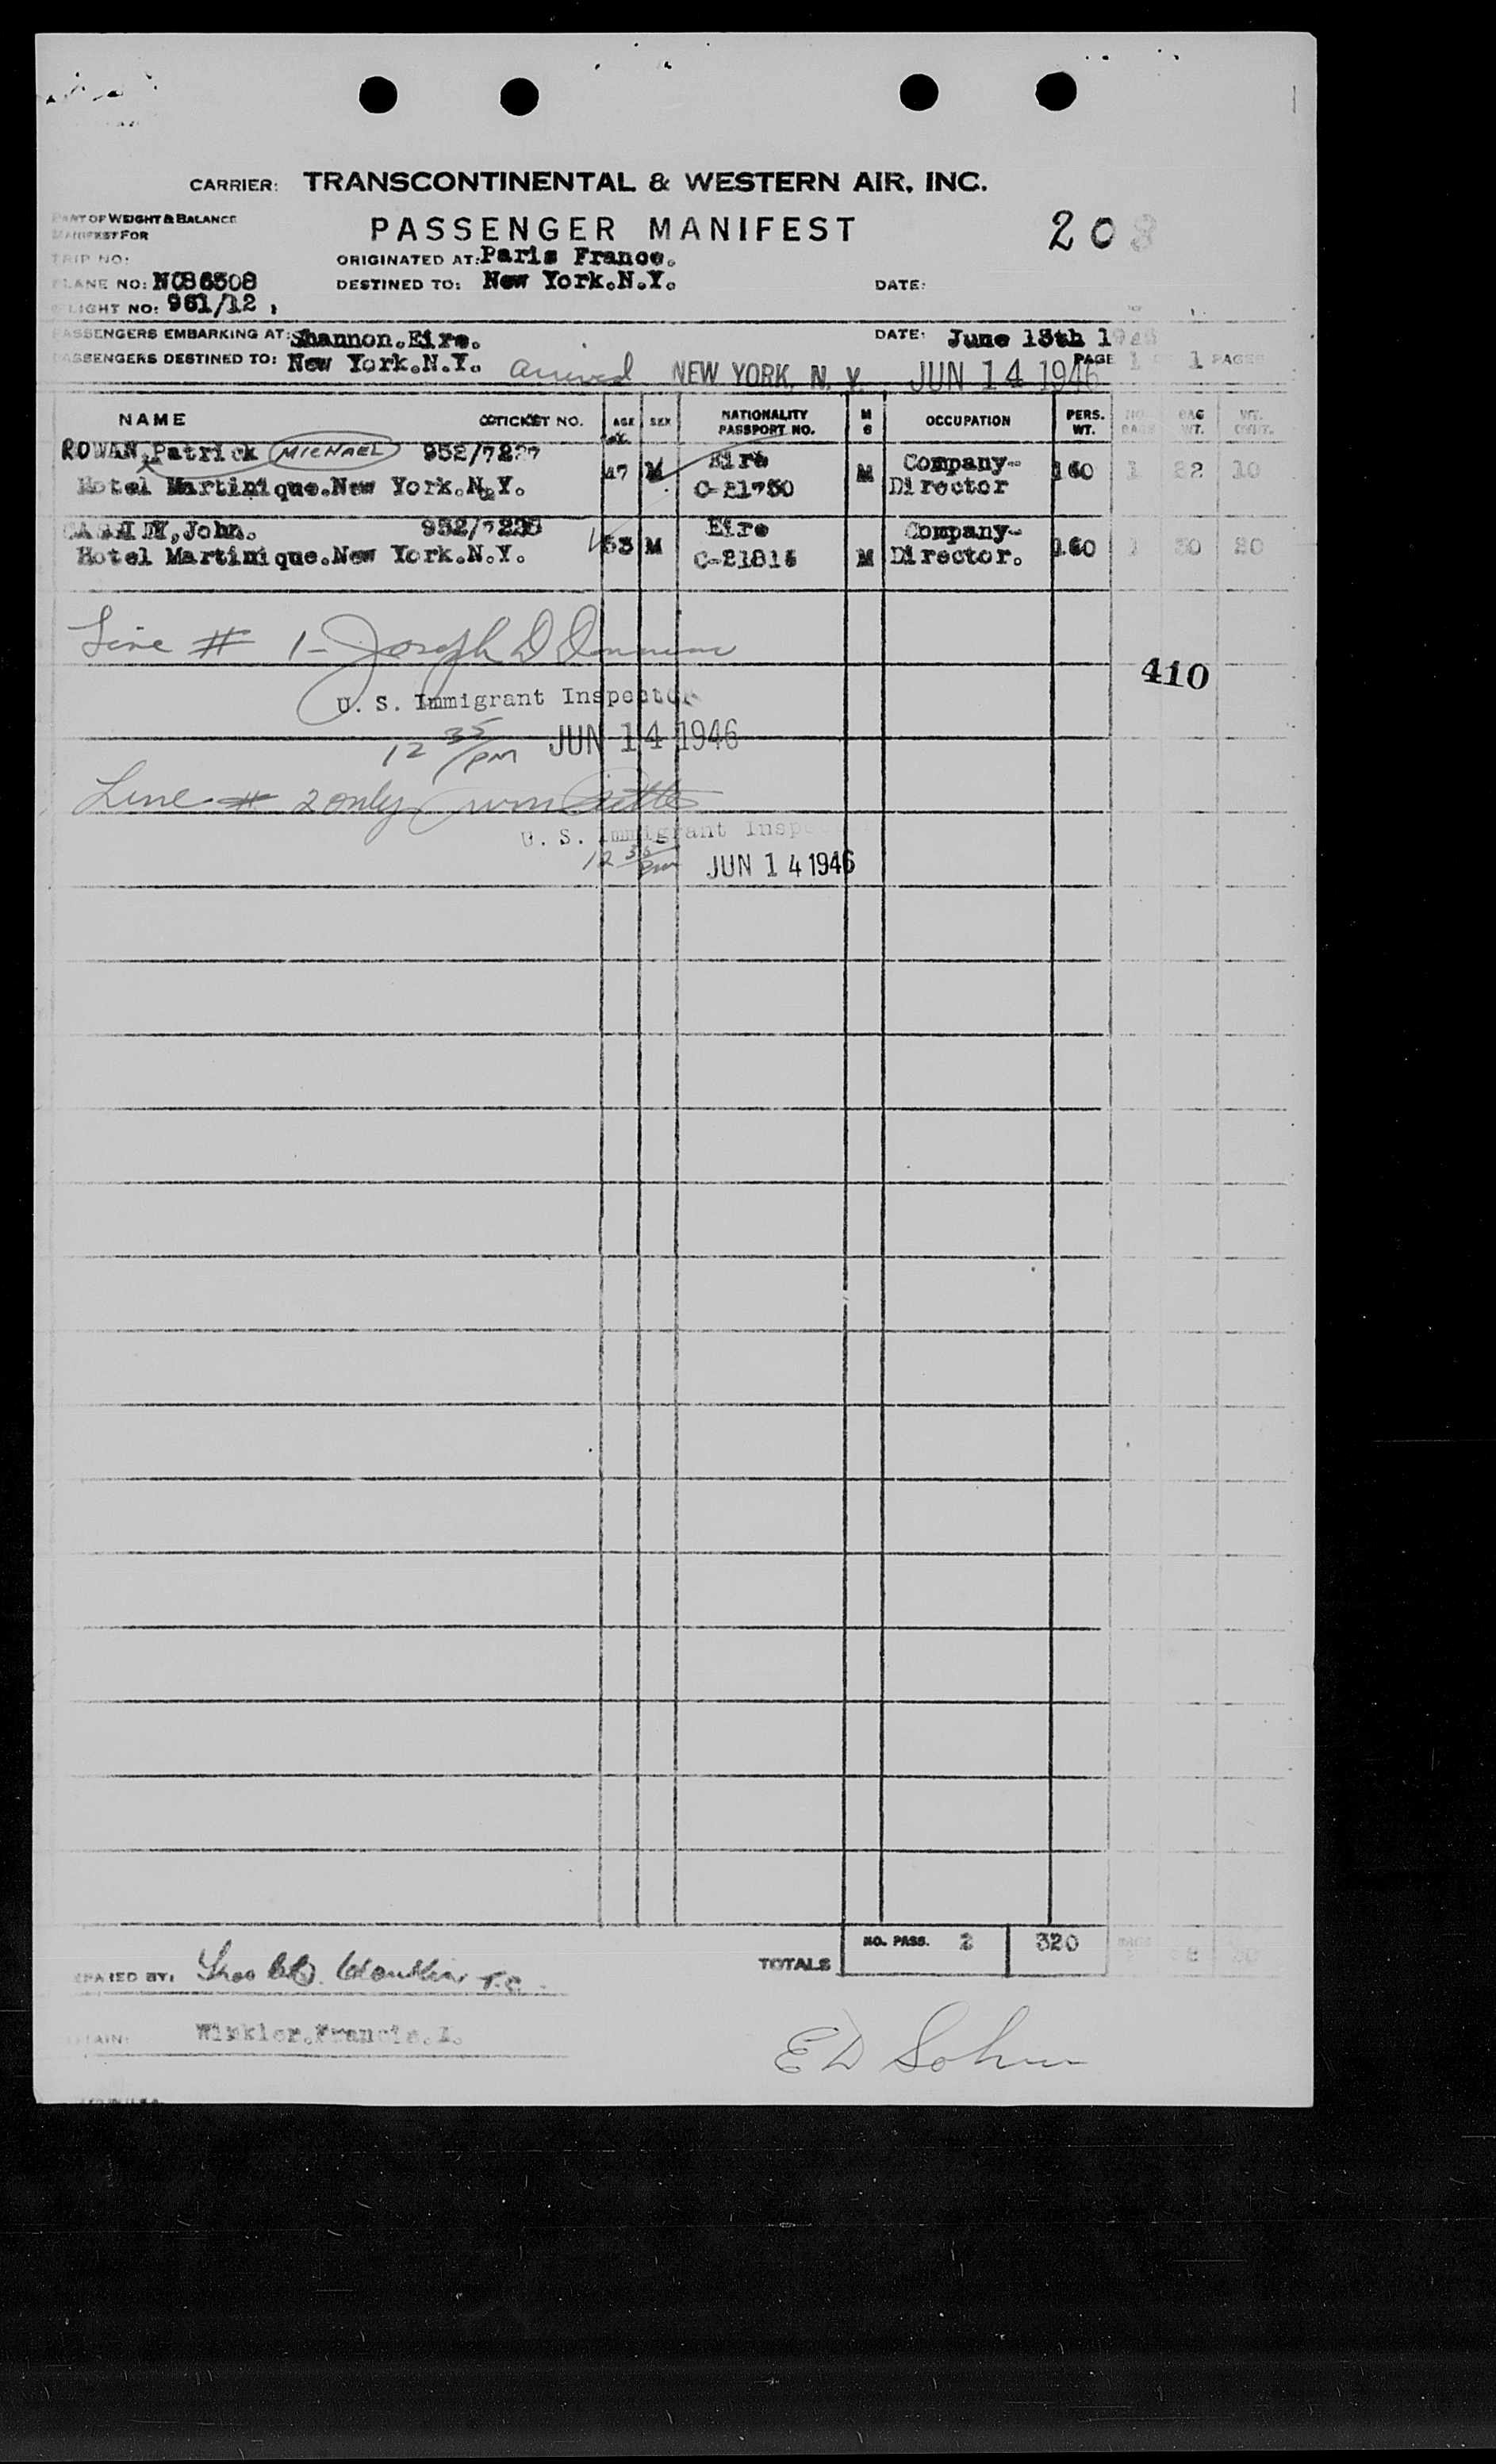 CARRIER: TRANSCONTINENTAL & WESTERN AIR, INC.
PART OF WEIGHT & BALANCE
MANIFEST FOR
PASSENGER MANIFEST
203
TRIP NO:
ORIGINATED AT: Paris France.
PLANE NO: NC86508
DESTINED TO: New York.N.Y.
DATE:
FLIGHT NO: 961/12
PASSENGERS EMBARKING AT: Shannon.Eire.
DATE: June 13th 1946
PASSENGERS DESTINED TO: New York.N.Y. arrived NEW YORK, N. Y. JUN 14 1946
PAGE 1 OF 1 PAGES
NAME TICKET NO. AGE SEX NATIONALITY PASSPORT NO. M S OCCUPATION PERS. WT. NO. BAGS BAG WT. WT. OVER.
ROWAN, Patrick MICHAEL 952/7227 47 M Eire M Company- 160 1 32 10
Hotel Martinique.New York.N.Y. C-21750 Director
John. 53 M Eire M Company- 160 1 30 20
Hotel Martinique.New York.N.Y. Director.
Line # 1 - Joseph D
U. S. Immigrant Inspector
410
12 35 PM JUN 14 1946
Line # 2 only Wm
U. S. Immigrant Inspector
12 35 PM JUN 14 1946
TOTALS NO. PASS. 2 320
PREPARED BY: T.C.
CAPTAIN: Winkler.Francis.I.
ED Sohm